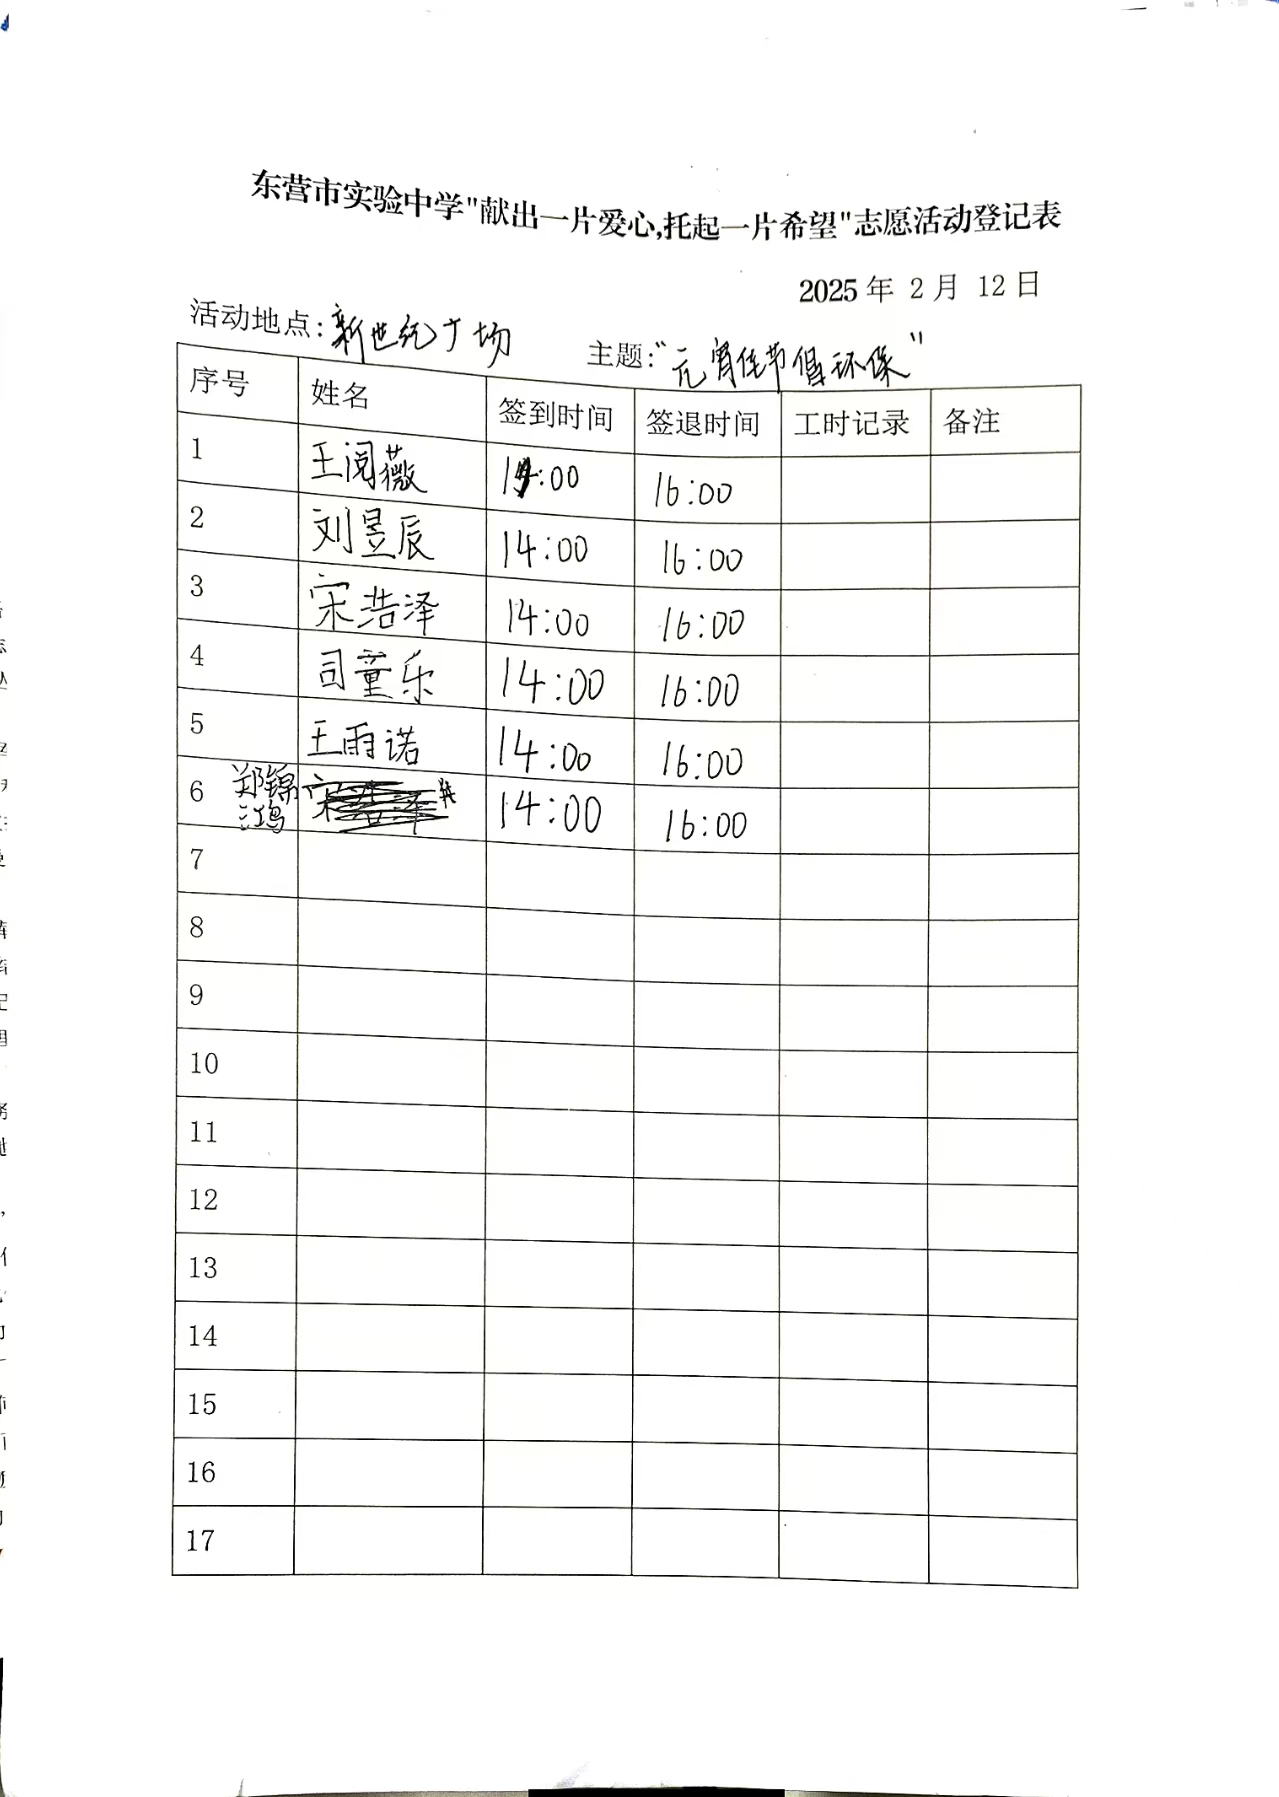 东营市实验中学"献出一片爱心,托起一片希望"志愿活动登记表
2025 年 2 月 12 日
活动地点:新世纪广场 主题:"元宵佳节倡环保"
序号 姓名 签到时间 签退时间 工时记录 备注
1 王阅薇 14:00 16:00
2 刘昱辰 14:00 16:00
3 宋浩泽 14:00 16:00
4 司童乐 14:00 16:00
5 王雨诺 14:00 16:00
6 郑锦鸿 14:00 16:00
7
8
9
10
11
12
13
14
15
16
17